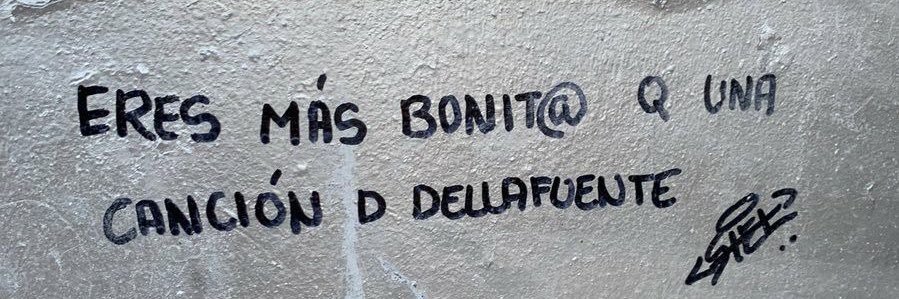 ERES MÁS BONIT@ Q UNA
CANCIÓN D DELLAFUENTE